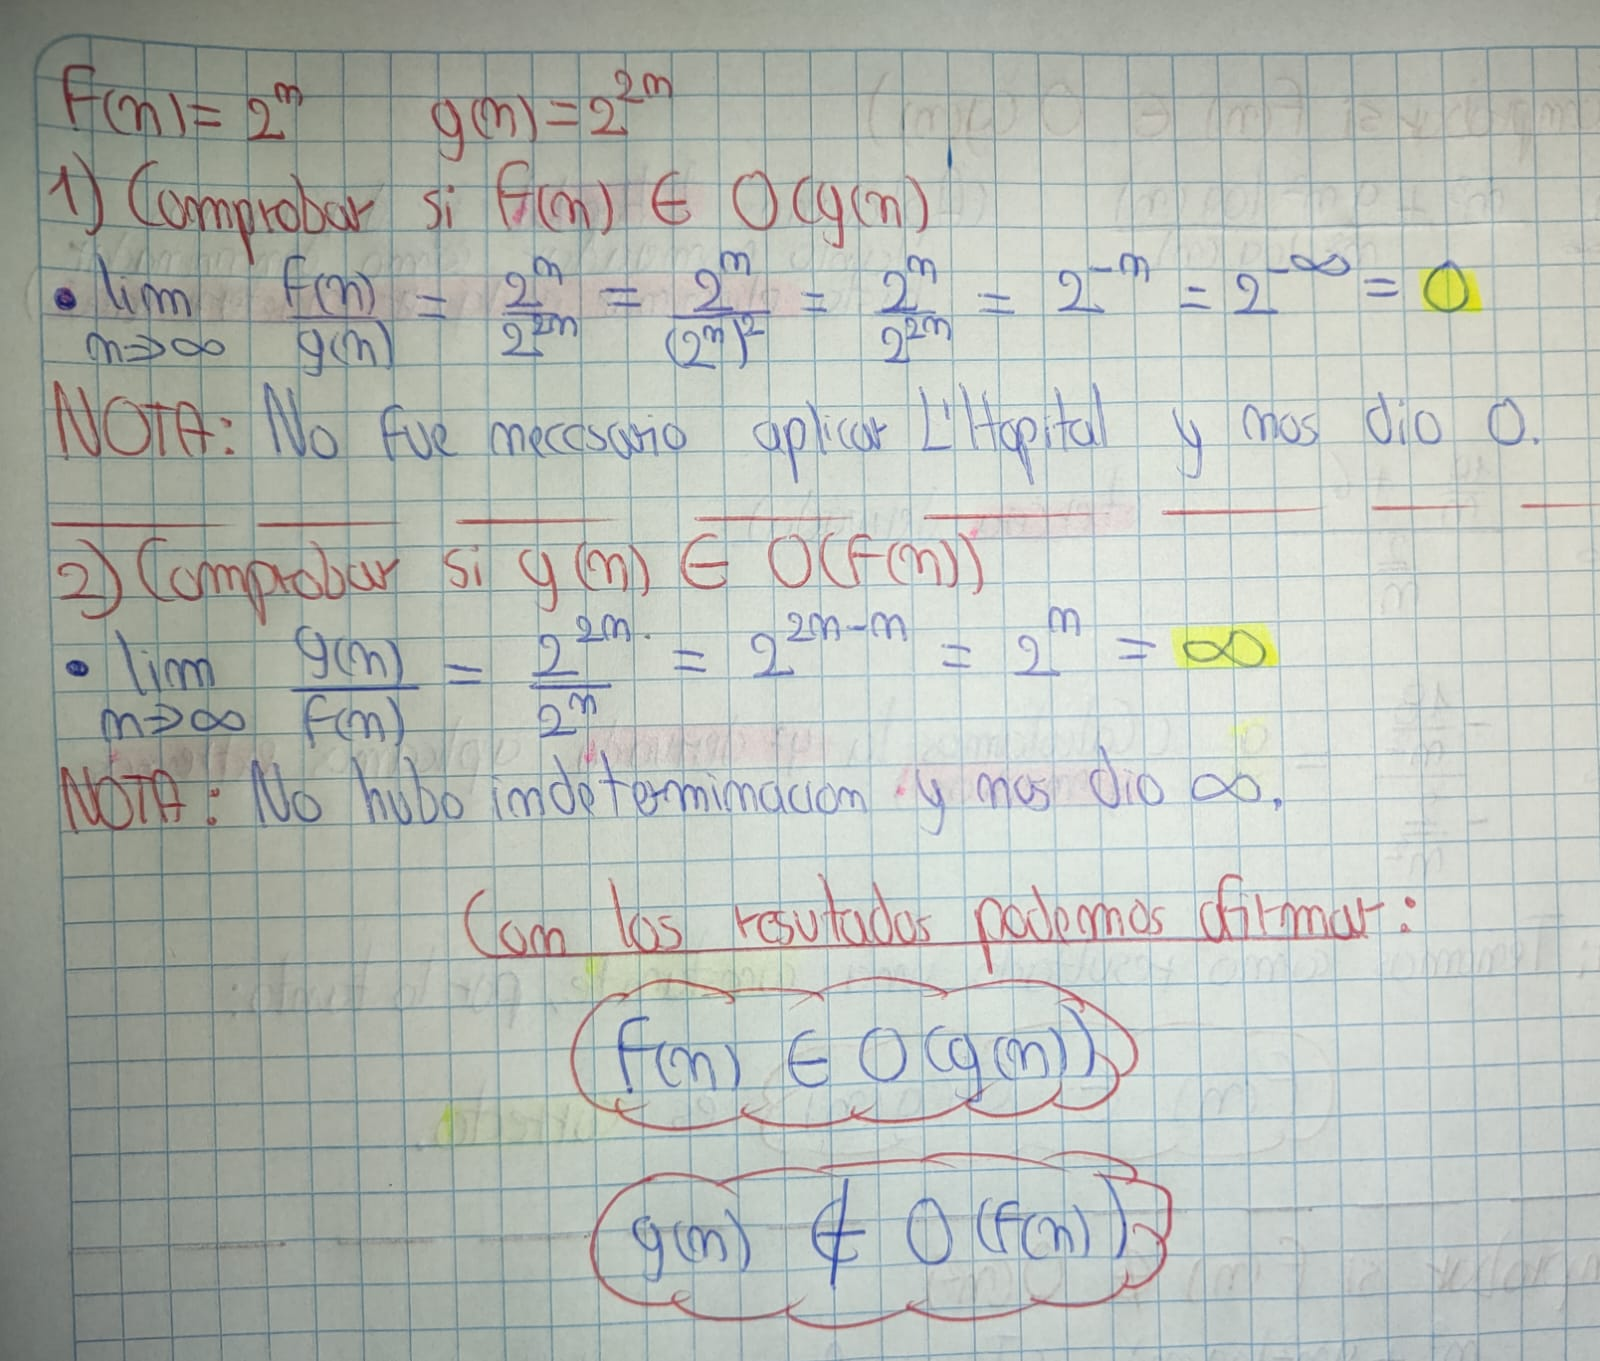 f(n) = 2^n    g(n) = 2^{2n}
1) Comprobar si f(n) ∈ O(g(n)
• lim n→∞ f(n)/g(n) = 2^n/2^{2n} = 2^n/(2^n)^2 = 2^n/2^{2n} = 2^{-n} = 2^{-∞} = 0
NOTA: No fue necesario aplicar L'Hopital y nos dio 0.
2) Comprobar si g(n) ∈ O(f(n))
• lim n→∞ g(n)/f(n) = 2^{2n}/2^n = 2^{2n-n} = 2^n = ∞
NOTA: No hubo indeterminacion y nos dio ∞.
Con los resutados podemos afirmar:
f(n) ∈ O(g(n))
g(n) ∉ O(f(n))